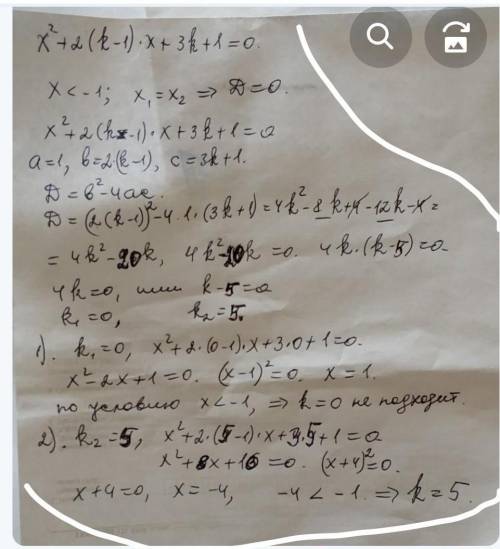 x²+2(k-1)·x+3k+1=0.
x<-1; x₁=x₂ ⇒ D=0.
x²+2(k-1)·x+3k+1=0
a=1, b=2·(k-1), c=3k+1.
D=b²-4ac.
D=(2(k-1))²-4·1·(3k+1)=4k²-8k+4-12k-4=
=4k²-20k, 4k²-20k=0. 4k·(k-5)=0.
4k=0, или k-5=0
k₁=0, k₂=5.
1). k₁=0, x²+2·(0-1)·x+3·0+1=0.
x²-2x+1=0. (x-1)²=0. x=1.
по условию x<-1, ⇒ k=0 не подходит.
2). k₂=5, x²+2·(5-1)·x+3·5+1=0
x²+8x+16=0. (x+4)²=0.
x+4=0, x=-4, -4<-1. ⇒ k=5.